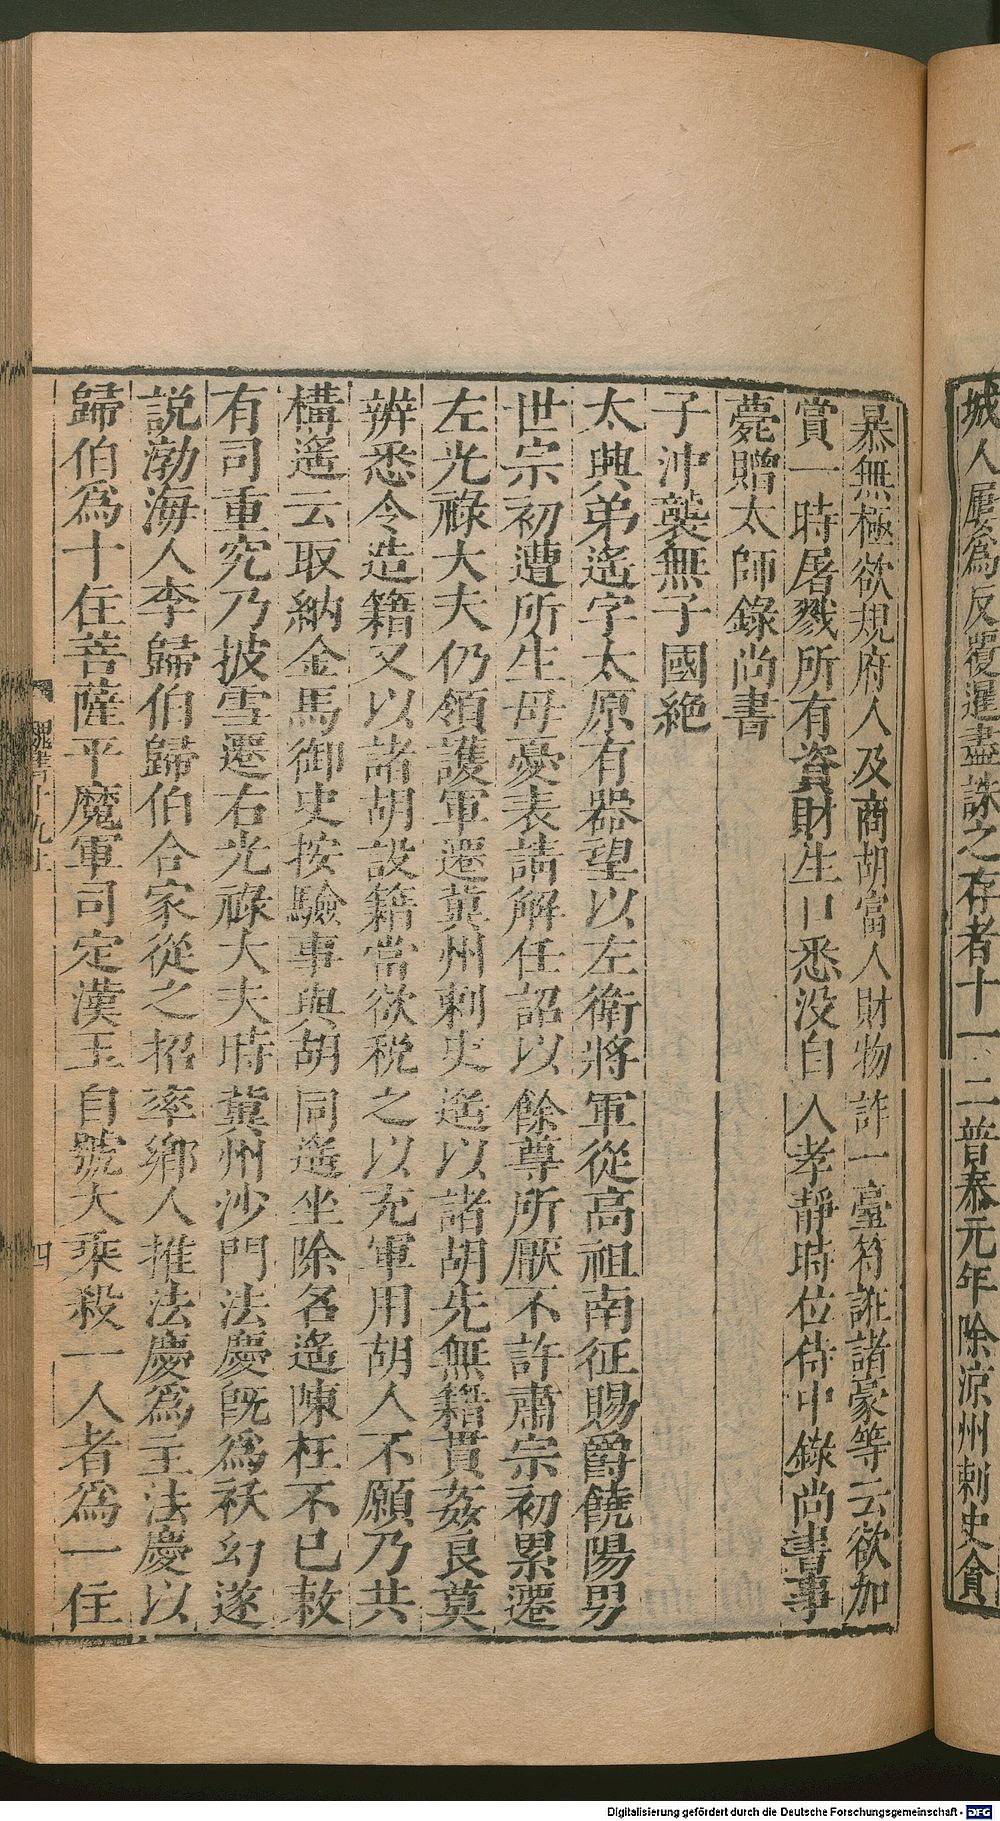 城人屢爲反覆遥盡誅之存者十一二普泰元年除涼州刺史貪
暴無極欲規府人及商胡富人財物詐一臺符誑諸豪等云欲加
賞一時屠戮所有資財生口悉没自入孝靜時位侍中錄尚書事
薨贈太師錄尚書
子沖襲無子國絶
太興弟遙字太原有器望以左衛將軍從高祖南征賜爵饒陽男
世宗初遭所生母憂表請解任詔以餘尊所厭不許肅宗初累遷
左光祿大夫仍領護軍遷冀州刺史遙以諸胡先無籍貫姦良莫
辨悉令造籍又以諸胡設籍當欲稅之以充軍用胡人不願乃共
構遙云取納金馬御史按驗事與胡同遙坐除名遙陳枉不已敕
有司重究乃披雪遷右光祿大夫時冀州沙門法慶旣爲祅幻遂
説渤海人李歸伯歸伯合家從之招率鄉人推法慶爲主法慶以
歸伯爲十住菩薩平魔軍司定漢王自號大乘殺一人者爲一住
魏書十九上
四
Digitalisierung gefördert durch die Deutsche Forschungsgemeinschaft - DFG